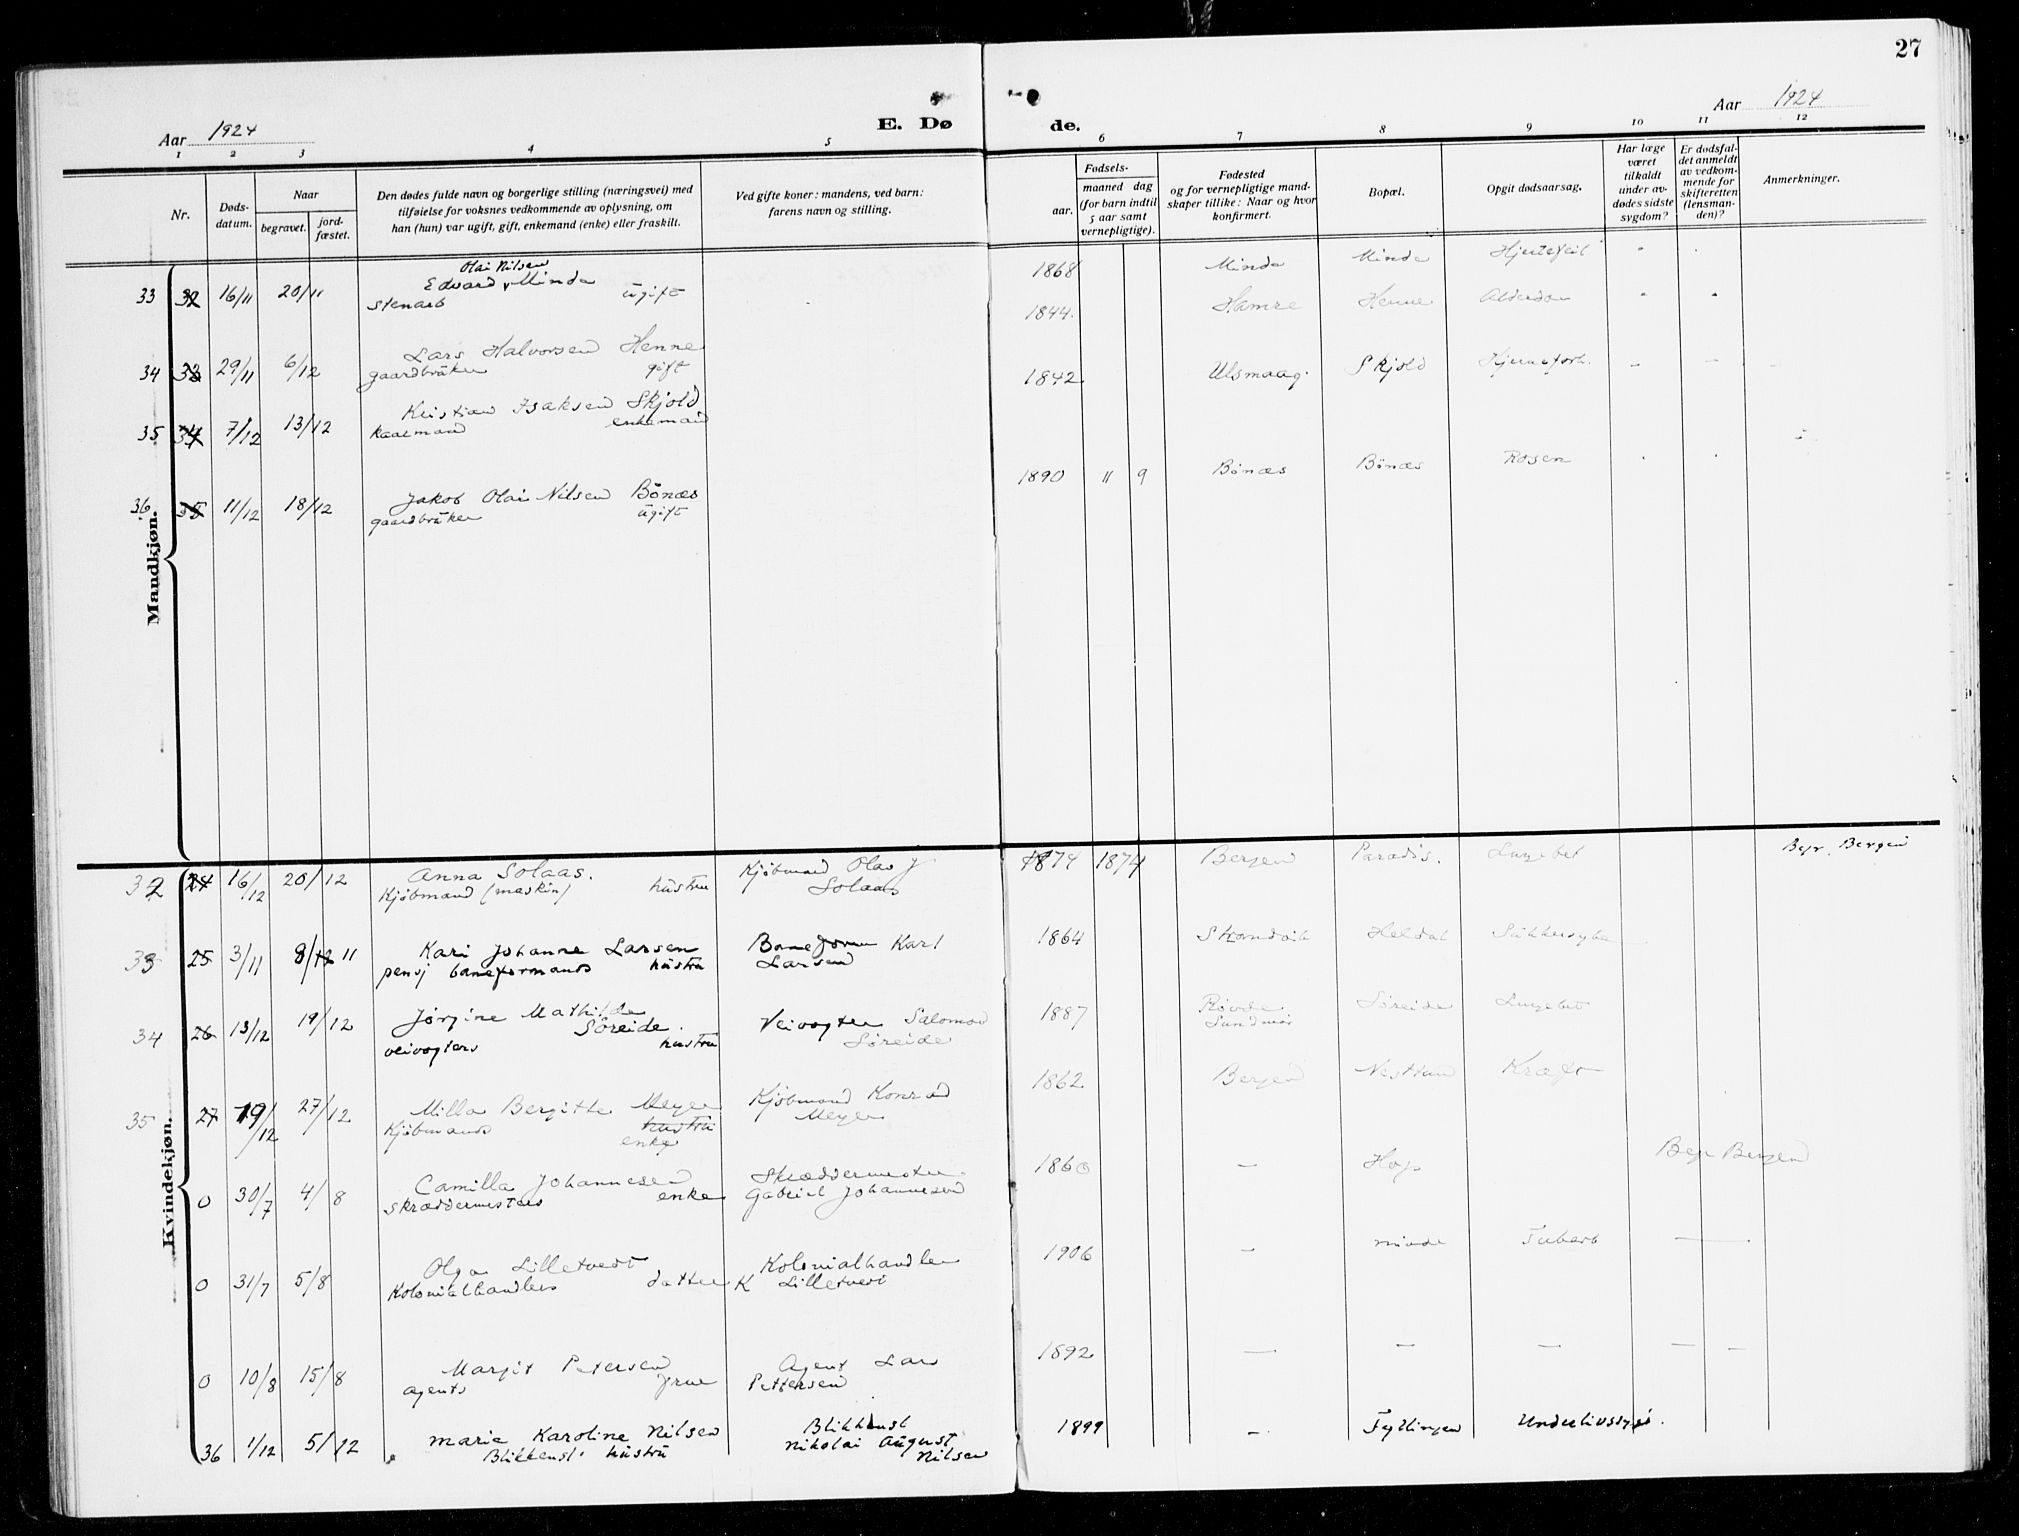 27
Aar 1924
E. Dø
de.
Aar 1924
1 2 3 4 5
6 7 8 9 10 11 12
Nr.
Døds-
datum.
Naar
begravet.
jord-
fæstet.
Den dødes fulde navn og borgerlige stilling (næringsvei) med
tilføielse for voksnes vedkommende av oplysning, om
han (hun) var ugift, gift, enkemand (enke) eller fraskilt.
Ved gifte koner: mandens, ved barn:
farens navn og stilling.
aar.
Fødsels-
maaned dag
(for barn indtil
5 aar samt
vernepligtige).
Fødested
og for vernepligtige mand-
skaper tillike: Naar og hvor
konfirmert.
Bopæl.
Opgit dødsaarsag.
Har læge
været
tilkaldt
under av-
dødes sidste
sygdom?
Er dødsfal-
det anmeldt
av vedkom-
mende for
skifteretten
(lensman-
den)?
Anmerkninger.
Mandkjøn.
Olai Nilsen
33 32 16/11 20/11 Edvard Minde
stenarb ugift
1868 Minde Minde Hjertefeil
34 33 29/11 6/12 Lars Halvorsen Henne
gaardbruker gift
1844 Hamre Henne
35 34 7/12 13/12 Kristian Isaksen Skjold
kaarmand enkemand
1842 Ulsmaag Skjold
36 35 11/12 18/12 Jakob Olai Nilsen Bönæs
gaardbruker ugift
1890 11 9 Bönæs Bönæs Rosen
Kvindekjøn.
32 24 16/12 20/12 Anna Solaas. Kjöbmand Olav J
Kjöbmand (maskin) hustru Solaas
1874 1874 Bergen Paradis. Lungebet Begr. Bergen
33 25 3/11 8/12 11 Kari Johanne Larsen Baneform Karl
pensj baneformands hustru Larsen
1864 Strandvik Heldal Sukkersyke
34 26 13/12 19/12 Jörgine Mathilde
Söreide. Veivogter Salomon
veivogters hustru Söreide
1887 Rövde
Sundmör Söreide Lungebet
35 27 19/12 27/12 Milla Bergitte Meyer Kjöbmand Konrad
Kjöbmands hustru Meyer
enke
1862 Bergen Nesttun Kræft
0 30/7 4/8 Camilla Johannesen Skræddermester
skræddermesters enke Gabriel Johannesen
1860 — Hop Begr Bergen
0 31/7 5/8 Olga Lilletvedt Kolonialhandler
Kolonialhandlers datter K Lilletvedt
1906 — Minde Tuberk —
0 10/8 15/8 Margit Petersen Agent Lars
agents frue Pettersen
1892 — — — — —
36 1/12 5/12 Marie Karoline Nilsen Blikkensl
Blikkensl. hustru Nikolai August
Nilsen
1899 — Fyllingen Underlivssyge.